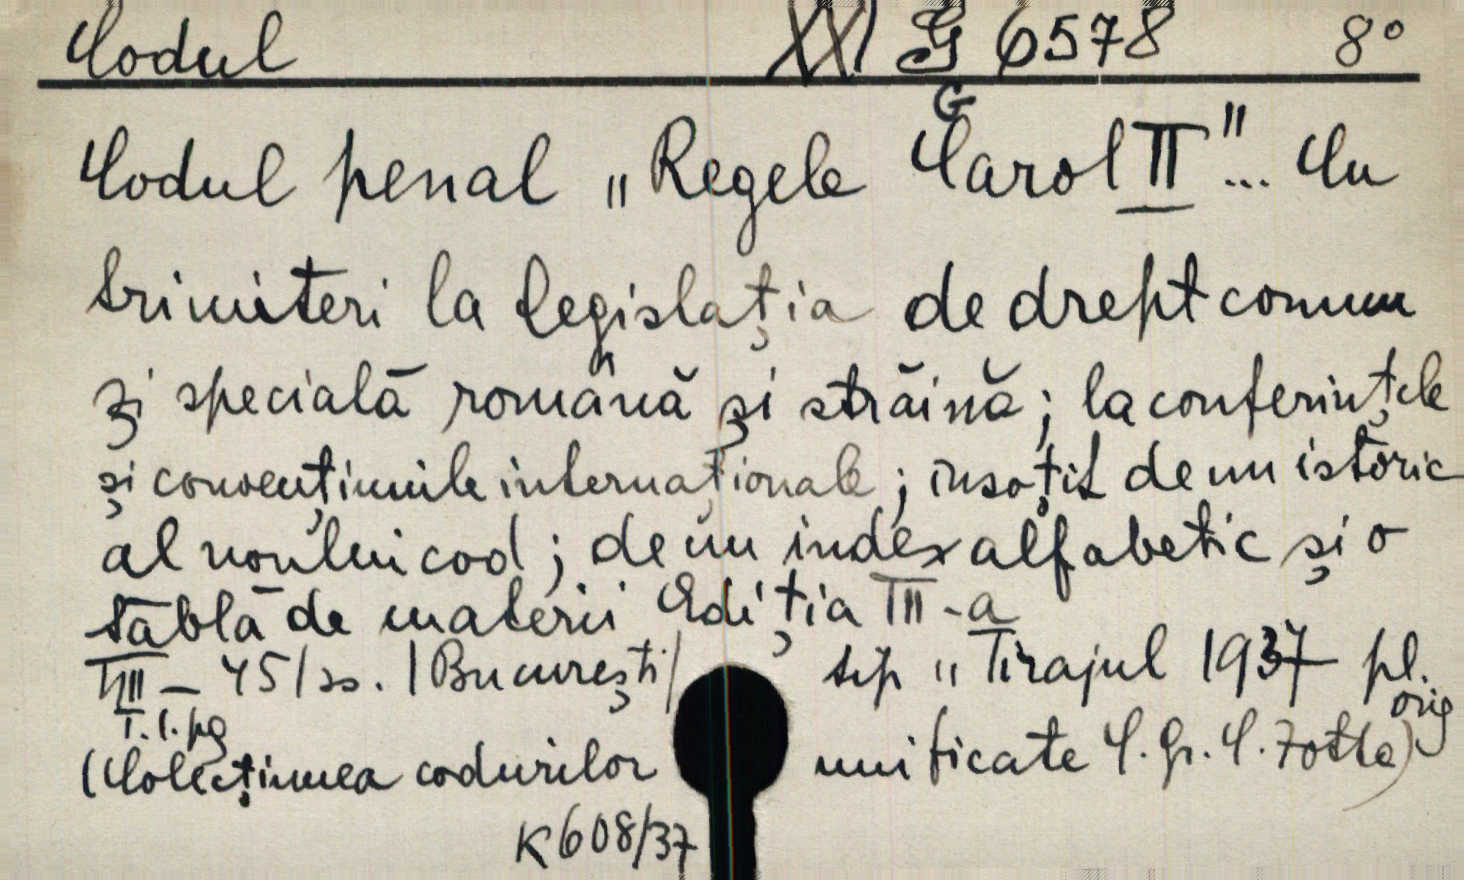 Codul XXI G 6578 8°
G
Codul penal „Regele Carol II" ... Cu
trimiteri la legislaţia de drept comun
şi specială română şi străină; la conferinţele
şi convenţiunile internaţionale; insoţit de un istoric
al noului cod; de un index alfabetic şi o
tablă de materii Ediţia III-a
45/ss. /Bucureşti/ tip „Tirajul 1937 pl.
T.I.pg orig
(Colecţiunea codurilor unificate C. Gr. C. Zotta)
K608/37